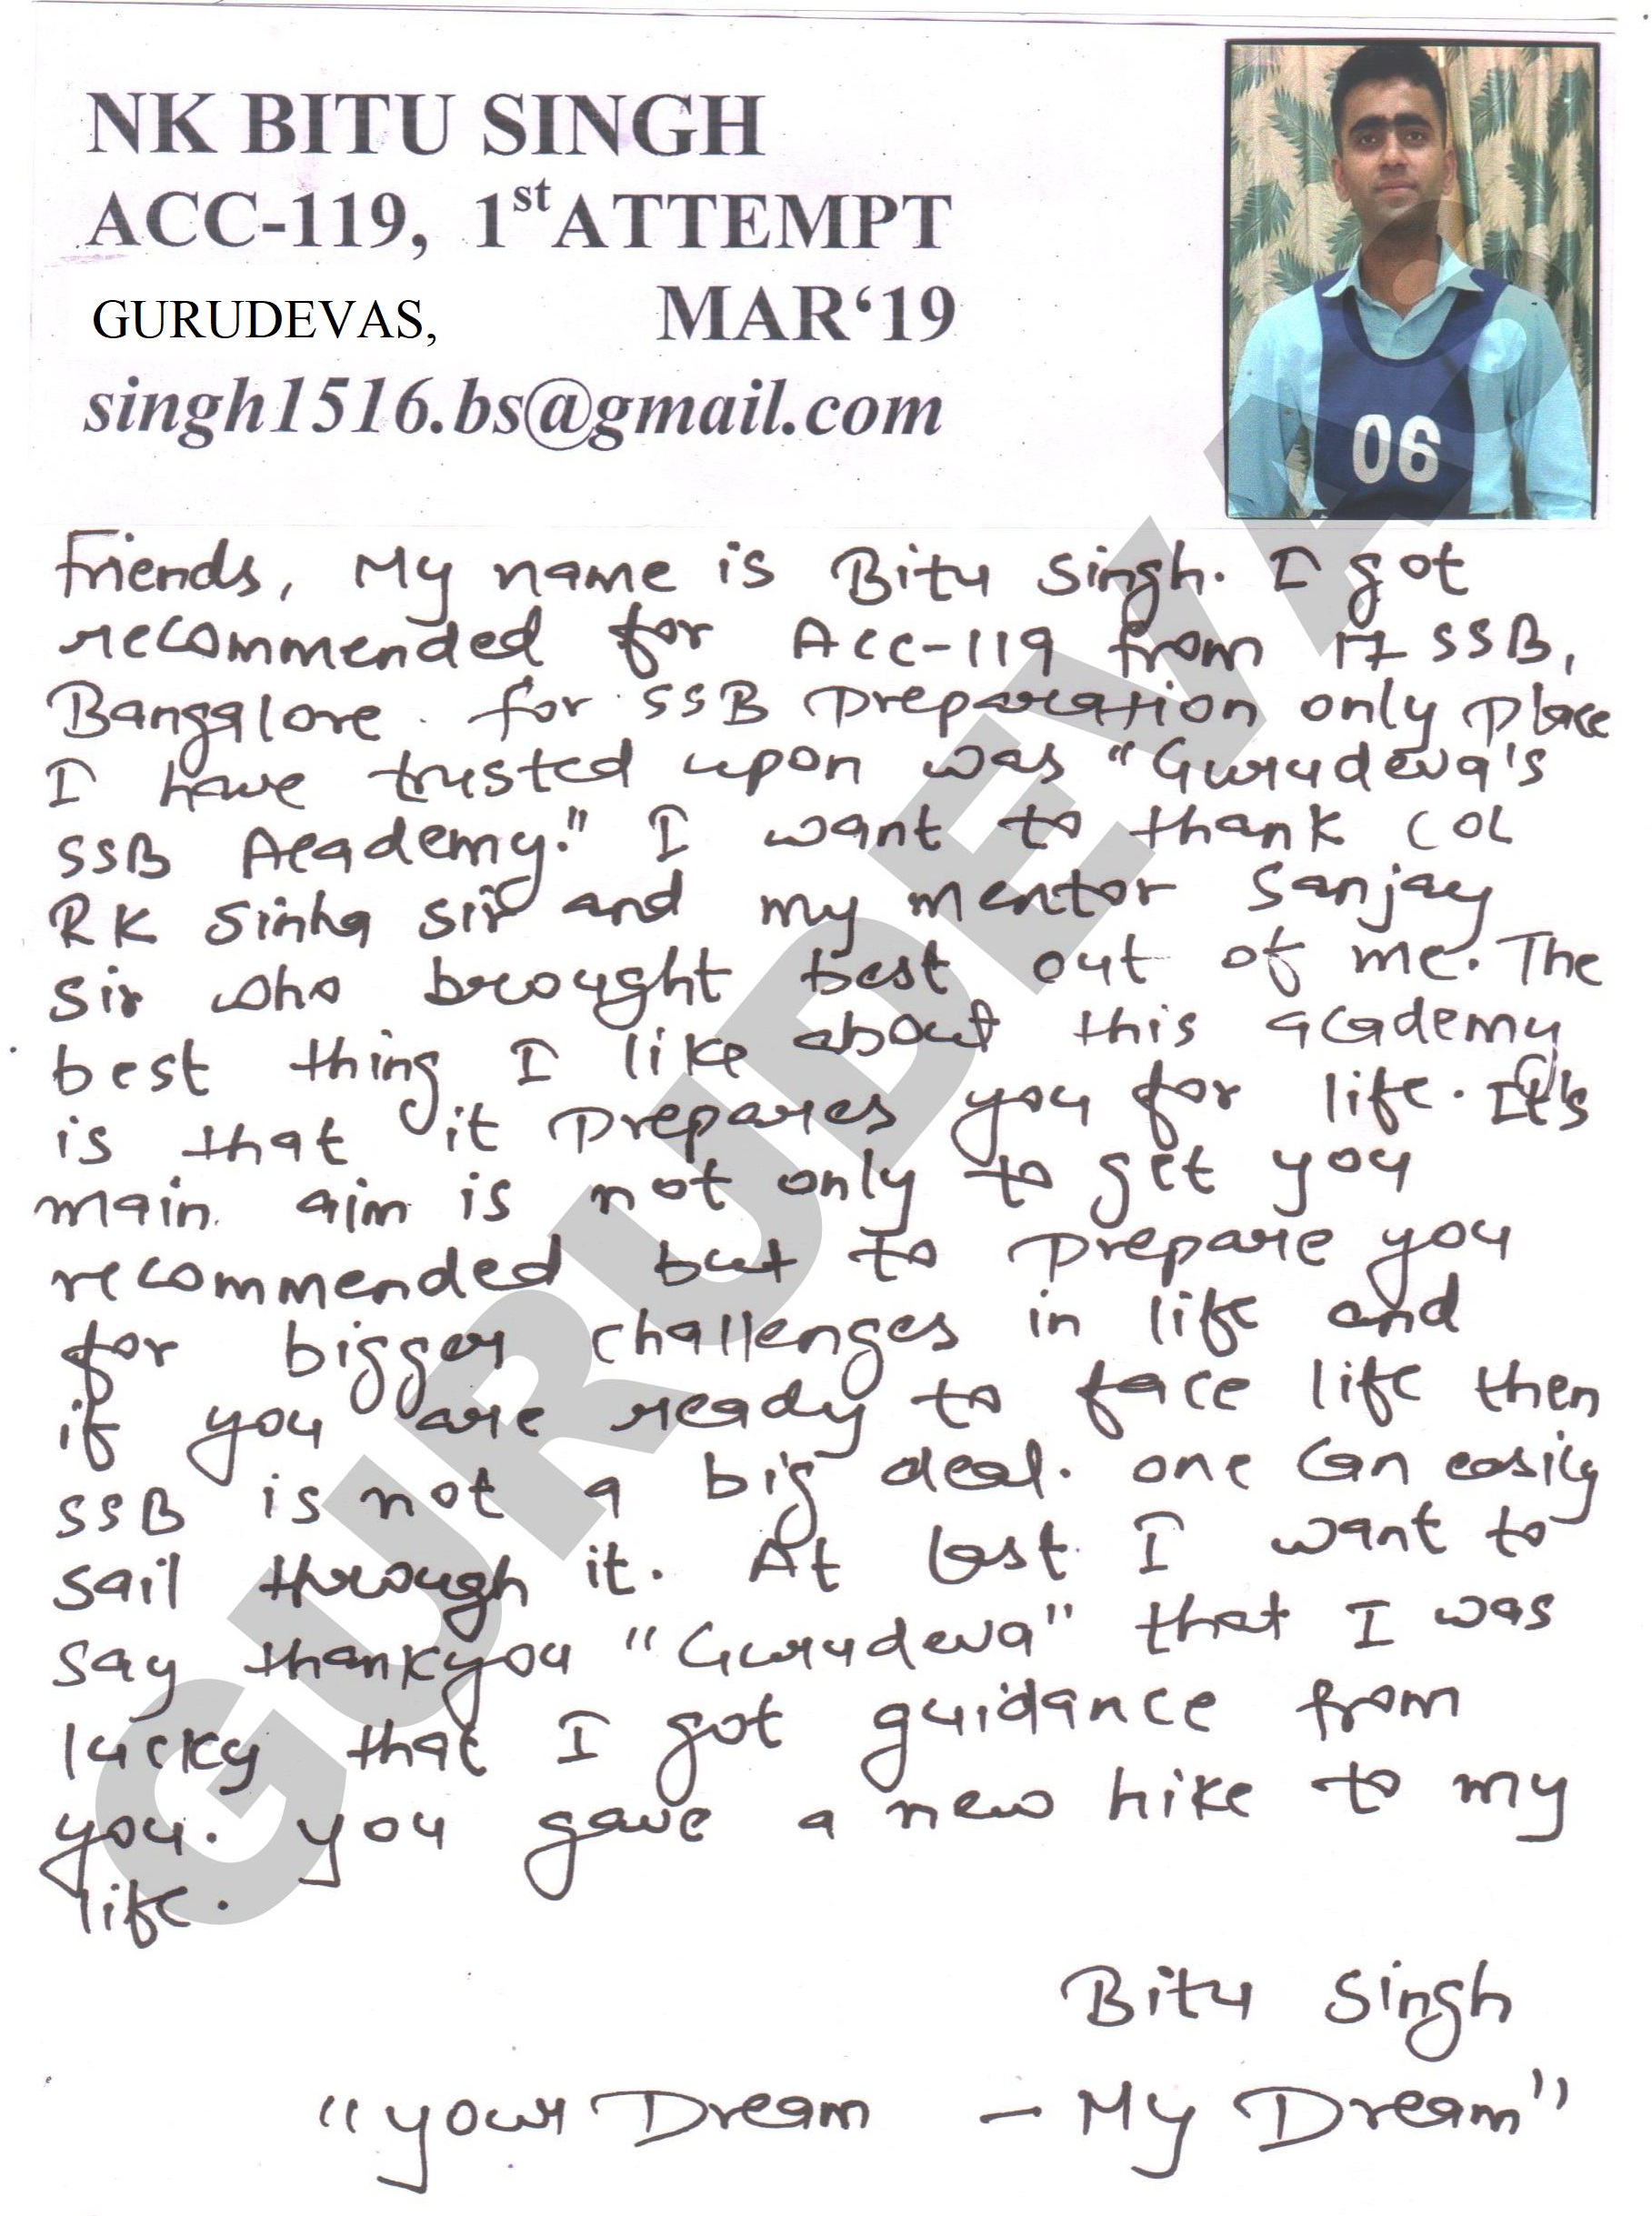 NK BITU SINGH
ACC-119, 1st ATTEMPT
GURUDEVAS, MAR‘19
singh1516.bs@gmail.com
06
Friends, My name is Bitu Singh. I got
recommended for Acc-119 from 17 SSB,
Bangalore. for SSB preparation only place
I have trusted upon was "Gurudeva's
SSB Academy." I want to thank COL
RK Sinha sir and my mentor Sanjay
sir who brought best out of me. The
best thing I like about this academy
is that it prepares you for life. It's
main aim is not only to get you
recommended but to prepare you
for bigger challenges in life and
if you are ready to face life then
SSB is not a big deal. one can easily
sail through it. At last I want to
say thankyou "Gurudeva" that I was
lucky that I got guidance from
you. you gave a new hike to my
life.
Bitu Singh
"your Dream - My Dream"
GURUDEVAS